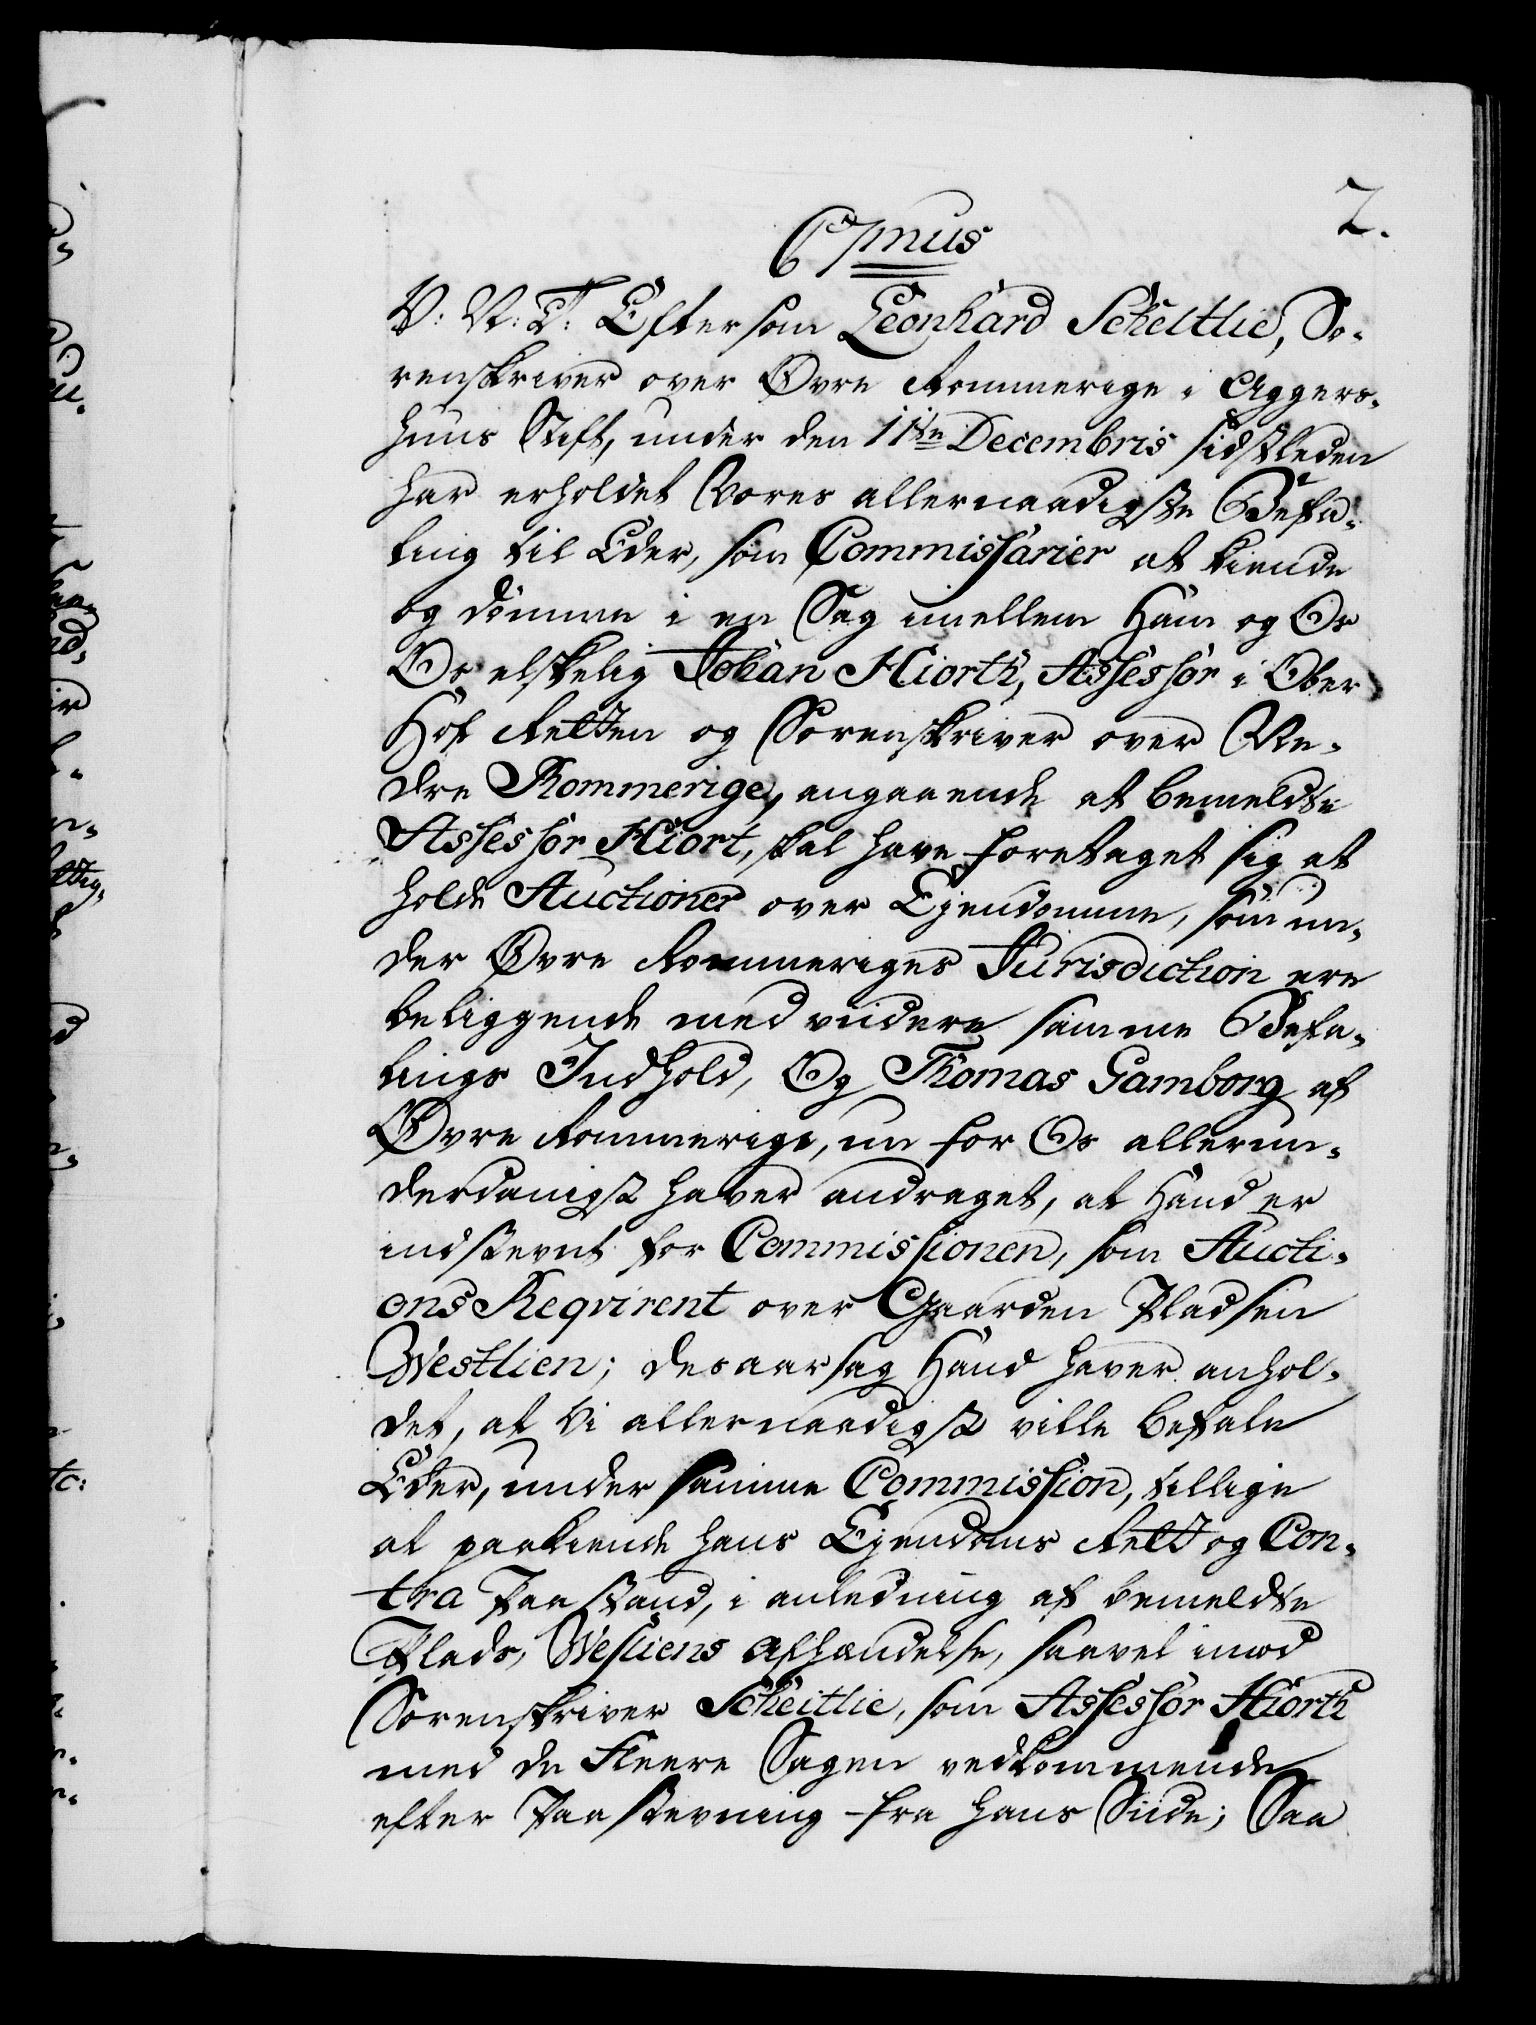 2.
C7mus
V: V: T: Eftersom Leonhard Scheitlie, So-
renskriver over Øvre Rommerige i Aggers-
huus Stift, under den 11te Decembris sidstleden
har erholdet Vores allernaadigste Befa-
ling til Eder, som Commissarier at kiende
og dömme i en Sag imellem Ham og Os
Os elskelig Johan Hiorth, Assessor i Ober
Hof Retten og Sorenskriver over Ne-
dre Rommerige, angaaende at bemeldte
Assessor Hiort, skal have foretaget sig at
holde Auctioner over Ejendomme, som un-
der Øvre Rommeriges Jurisdiction ere
beliggende med viidere samme Befa-
lings Indhold, Og Thomas Gamborg af
Øvre Rommerige, nu for Os allerun-
derdanigst haver andraget, at Hand er
indstevnt for Commissionen, som Aucti-
ons Reqvirent over Gaarden Pladsen
Westlien; desaarsag Hand haver anhol-
det, at Vi allernaadigst ville befale
Eder, under samme Commission, tillige
at paakiende hans Ejendoms Rett og Con-
tra Paastand, i anledning af bemeldte
Plads, Wesliens Afhændelse, saavel imod
Sorenskriver Scheitlie, som Assessor Hiorth
med de Fleere Sagen vedkommende
efter Paastevning fra hans Siide; Saa